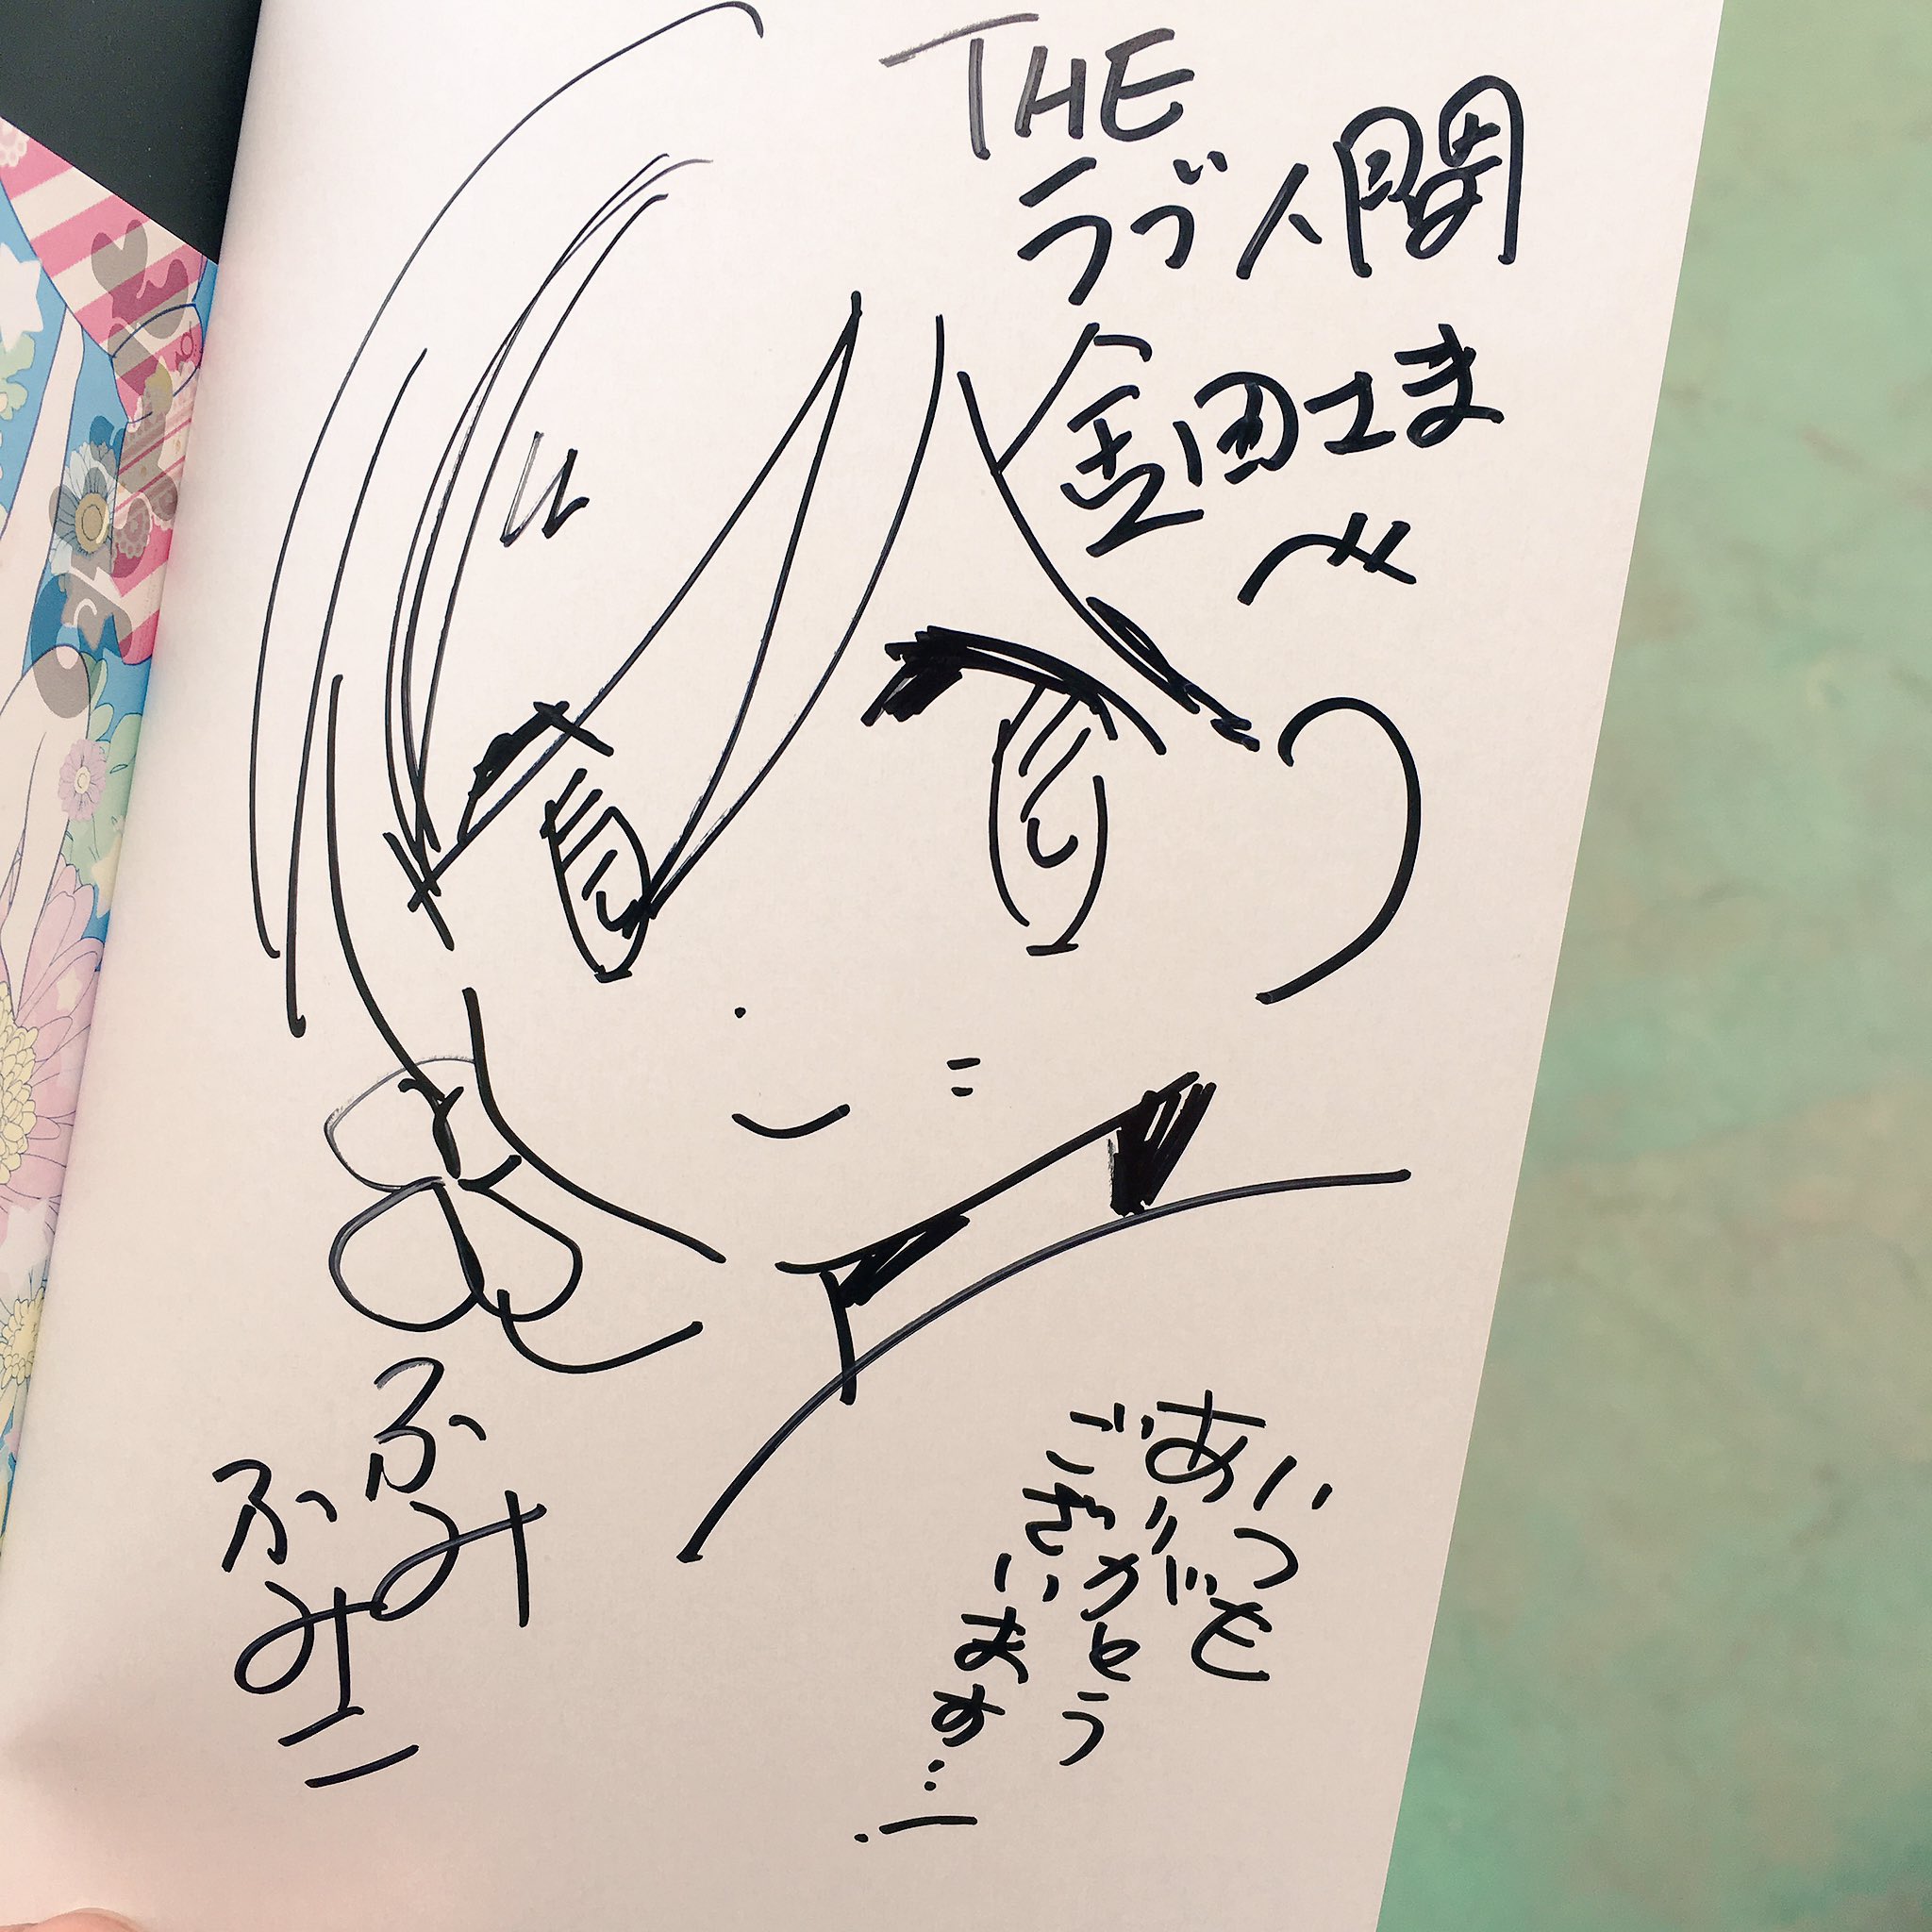 THE
ラブ人間
金田さま
へ
いつも
ありがとう
ございます…!
ふみ
ふみこ